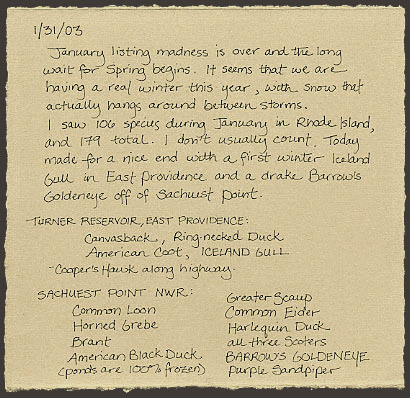 1/31/03
January listing madness is over and the long
wait for Spring begins. It seems that we are
having a real winter this year, with snow that
actually hangs around between storms.
I saw 106 species during January in Rhode Island,
and 179 total. I don't usually count. Today
made for a nice end with a first winter Iceland
Gull in East Providence and a drake Barrow's
Goldeneye off of Sachuest Point.
TURNER RESERVOIR, EAST PROVIDENCE:
Canvasback, Ring-necked Duck
American Coot, ICELAND GULL
-Cooper's Hawk along highway.
SACHUEST POINT NWR:
Common Loon
Horned Grebe
Brant
American Black Duck
(ponds are 100% frozen)
Greater Scaup
Common Eider
Harlequin Duck
all three Scoters
BARROW'S GOLDENEYE
Purple Sandpiper